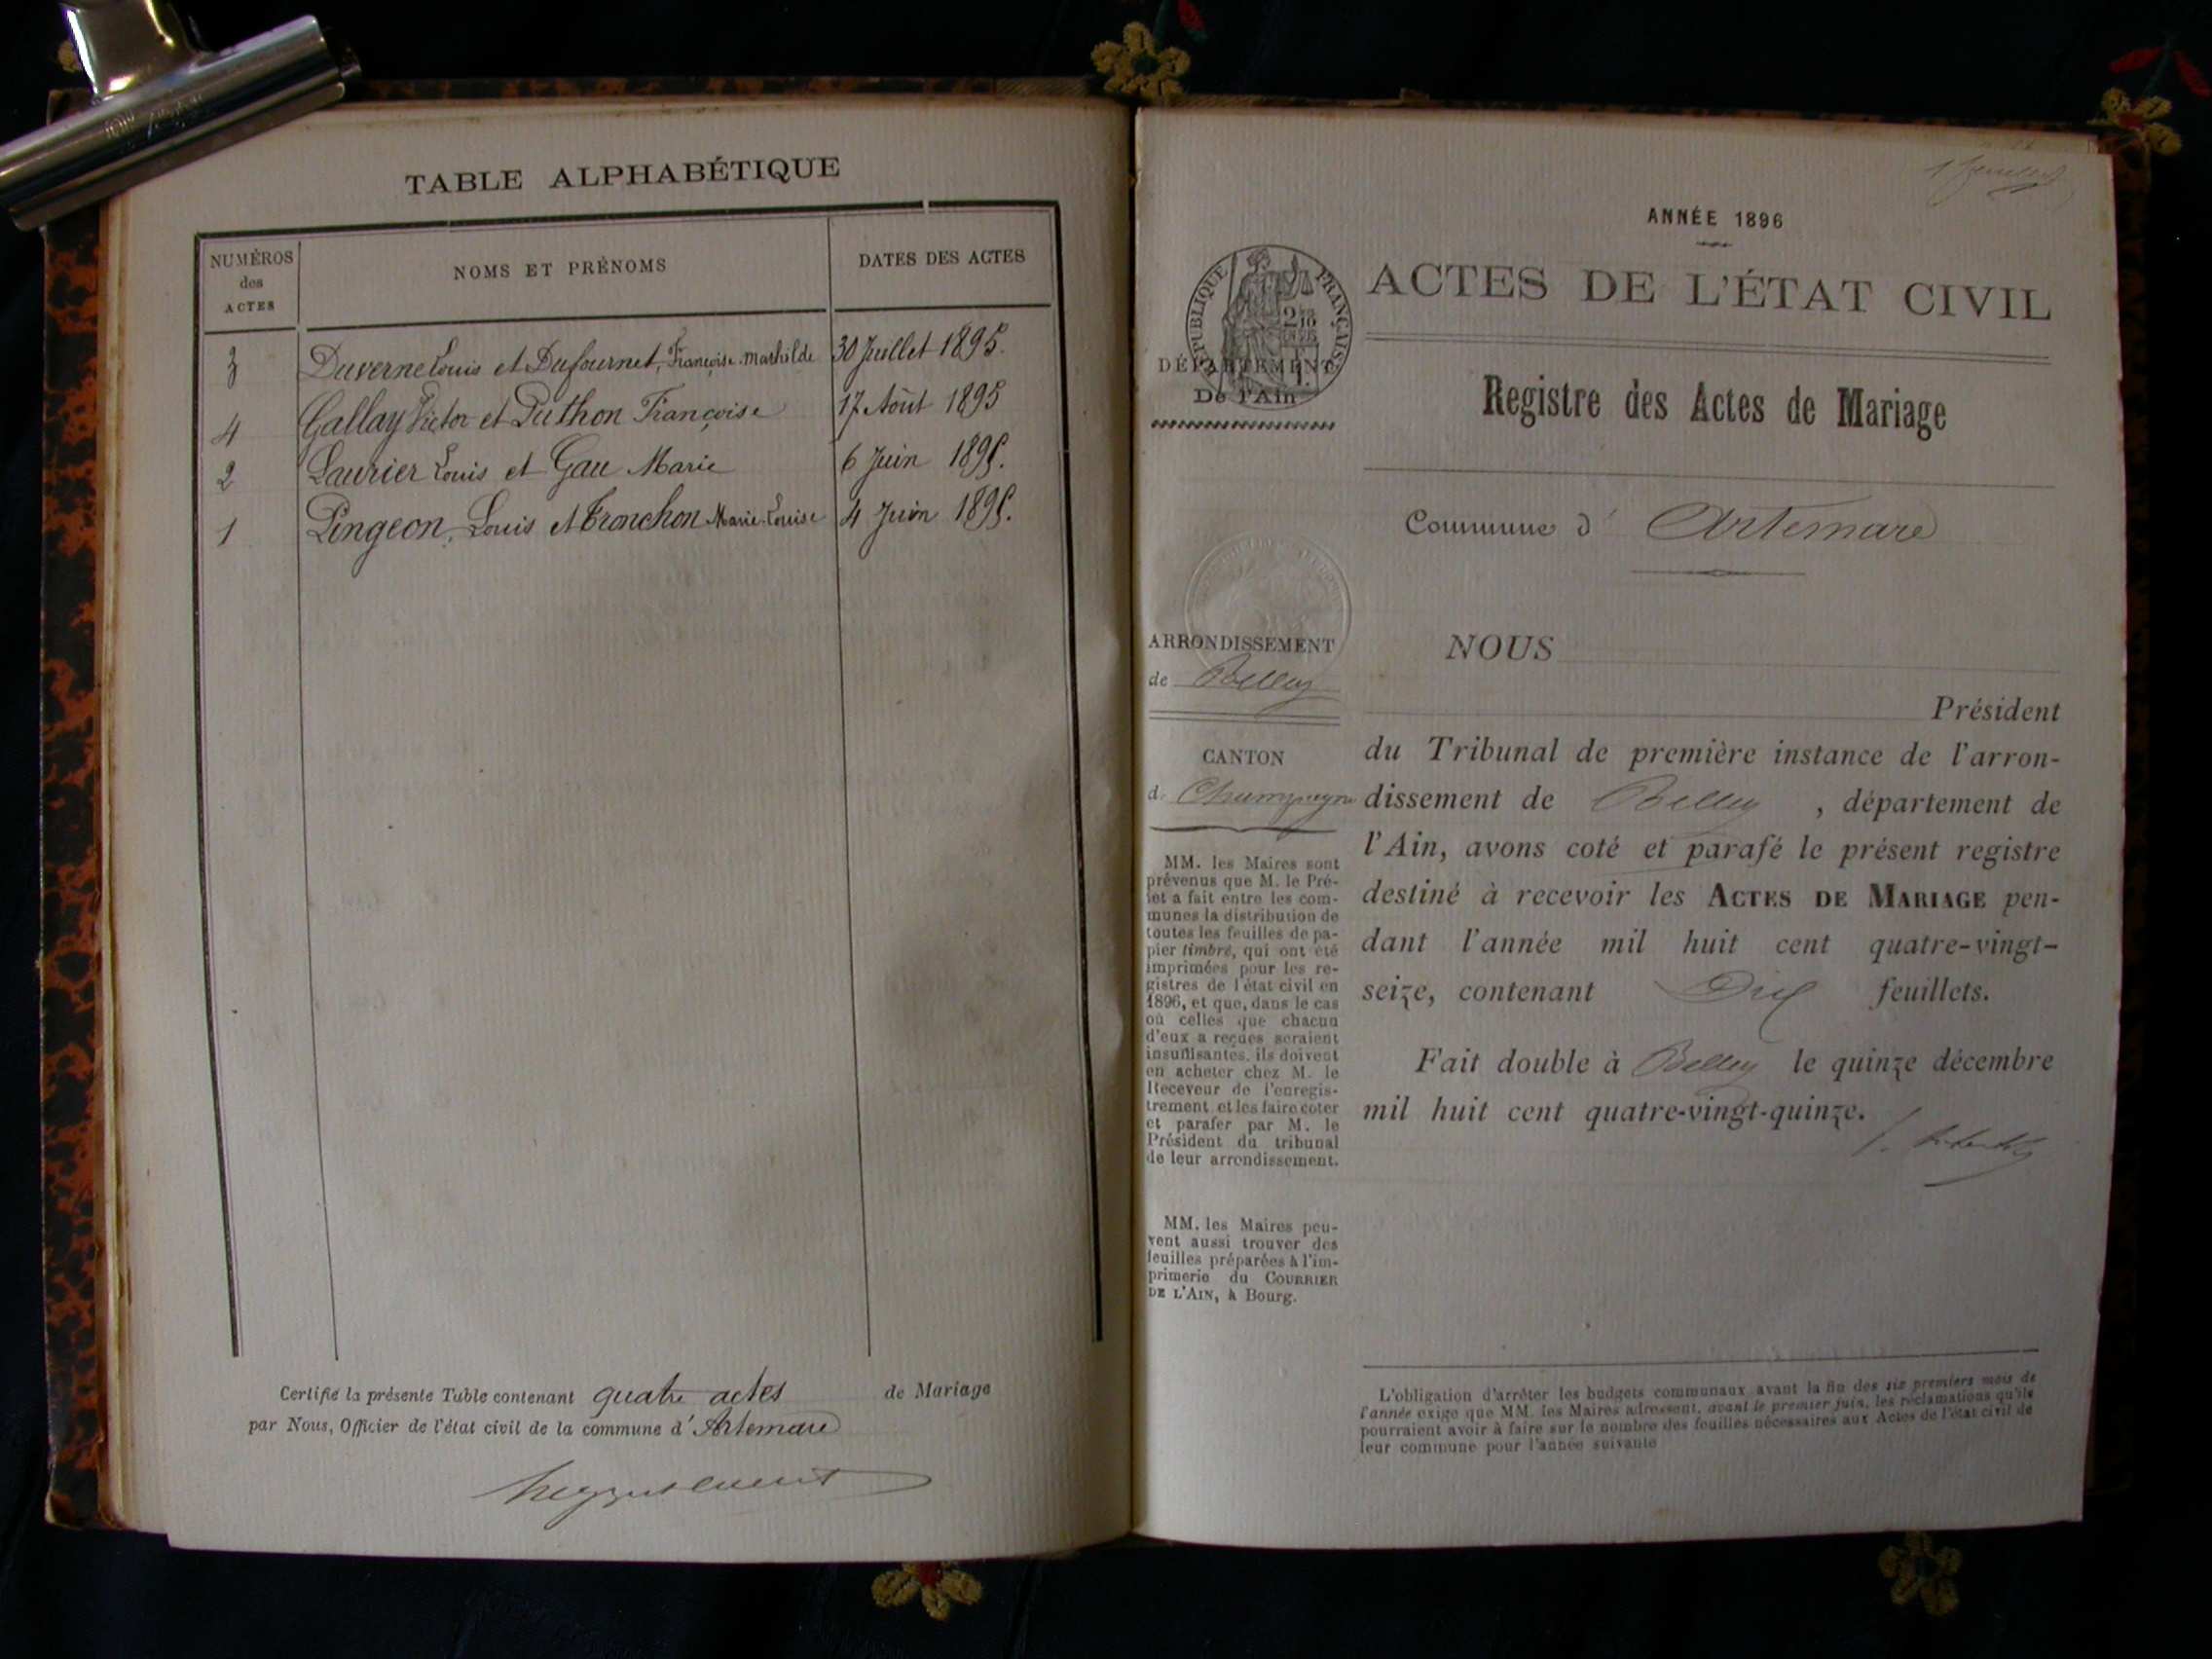 TABLE ALPHABÉTIQUE
NUMÉROS
des
ACTES
NOMS ET PRÉNOMS
DATES DES ACTES
3 Duverne Louis et Dufournet, Françoise-Mathilde 30 Juillet 1895.
4 Gallay Victor et Puthon Françoise 17 Août 1895
2 Laurier Louis et Gau Marie 6 Juin 1895.
1 Pingeon, Louis et Tronchon Marie-Louise 4 Juin 1895.
Certifié la présente Table contenant quatre actes de Mariage
par Nous, Officier de l'état civil de la commune d' Artemare
ANNÉE 1896
ACTES DE L'ÉTAT CIVIL
RÉPUBLIQUE FRANÇAISE
DÉPARTEMENT
De l'Ain
Registre des Actes de Mariage
Commune d' Artemare
ARRONDISSEMENT
de Belley
CANTON
d. Champagne
MM. les Maires sont
prévenus que M. le Pré-
fet a fait entre les com-
munes la distribution de
toutes les feuilles de pa-
pier timbré, qui ont été
imprimées pour les re-
gistres de l'état civil en
1896, et que, dans le cas
où celles que chacun
d'eux a reçues seraient
insuffisantes, ils doivent
en acheter chez M. le
Receveur de l'enregis-
trement et les faire coter
et parafer par M. le
Président du tribunal
de leur arrondissement.
MM. les Maires peu-
vent aussi trouver des
feuilles préparées à l'im-
primerie du COURRIER
DE L'AIN, à Bourg.
NOUS
Président
du Tribunal de première instance de l'arron-
dissement de Belley , département de
l'Ain, avons coté et parafé le présent registre
destiné à recevoir les ACTES DE MARIAGE pen-
dant l'année mil huit cent quatre-vingt-
seize, contenant Dix feuillets.
Fait double à Belley le quinze décembre
mil huit cent quatre-vingt-quinze.
L'obligation d'arrêter les budgets communaux avant la fin des six premiers mois de
l'année exige que MM. les Maires adressent, avant le premier juin, les réclamations qu'ils
pourraient avoir à faire sur le nombre des feuilles nécessaires aux Actes de l'état civil de
leur commune pour l'année suivante